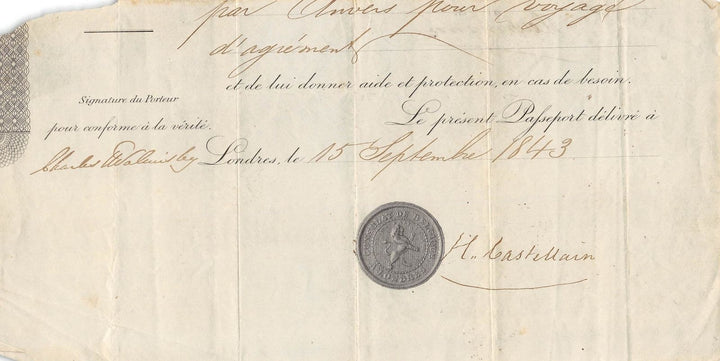 par Anvers pour voyage
d'agrément
et de lui donner aide et protection, en cas de besoin.
Signature du Porteur
Le présent Passeport délivré à
pour conforme à la vérité.
Charles Walmisley Londres, le 15 Septembre 1843
H. Castellain